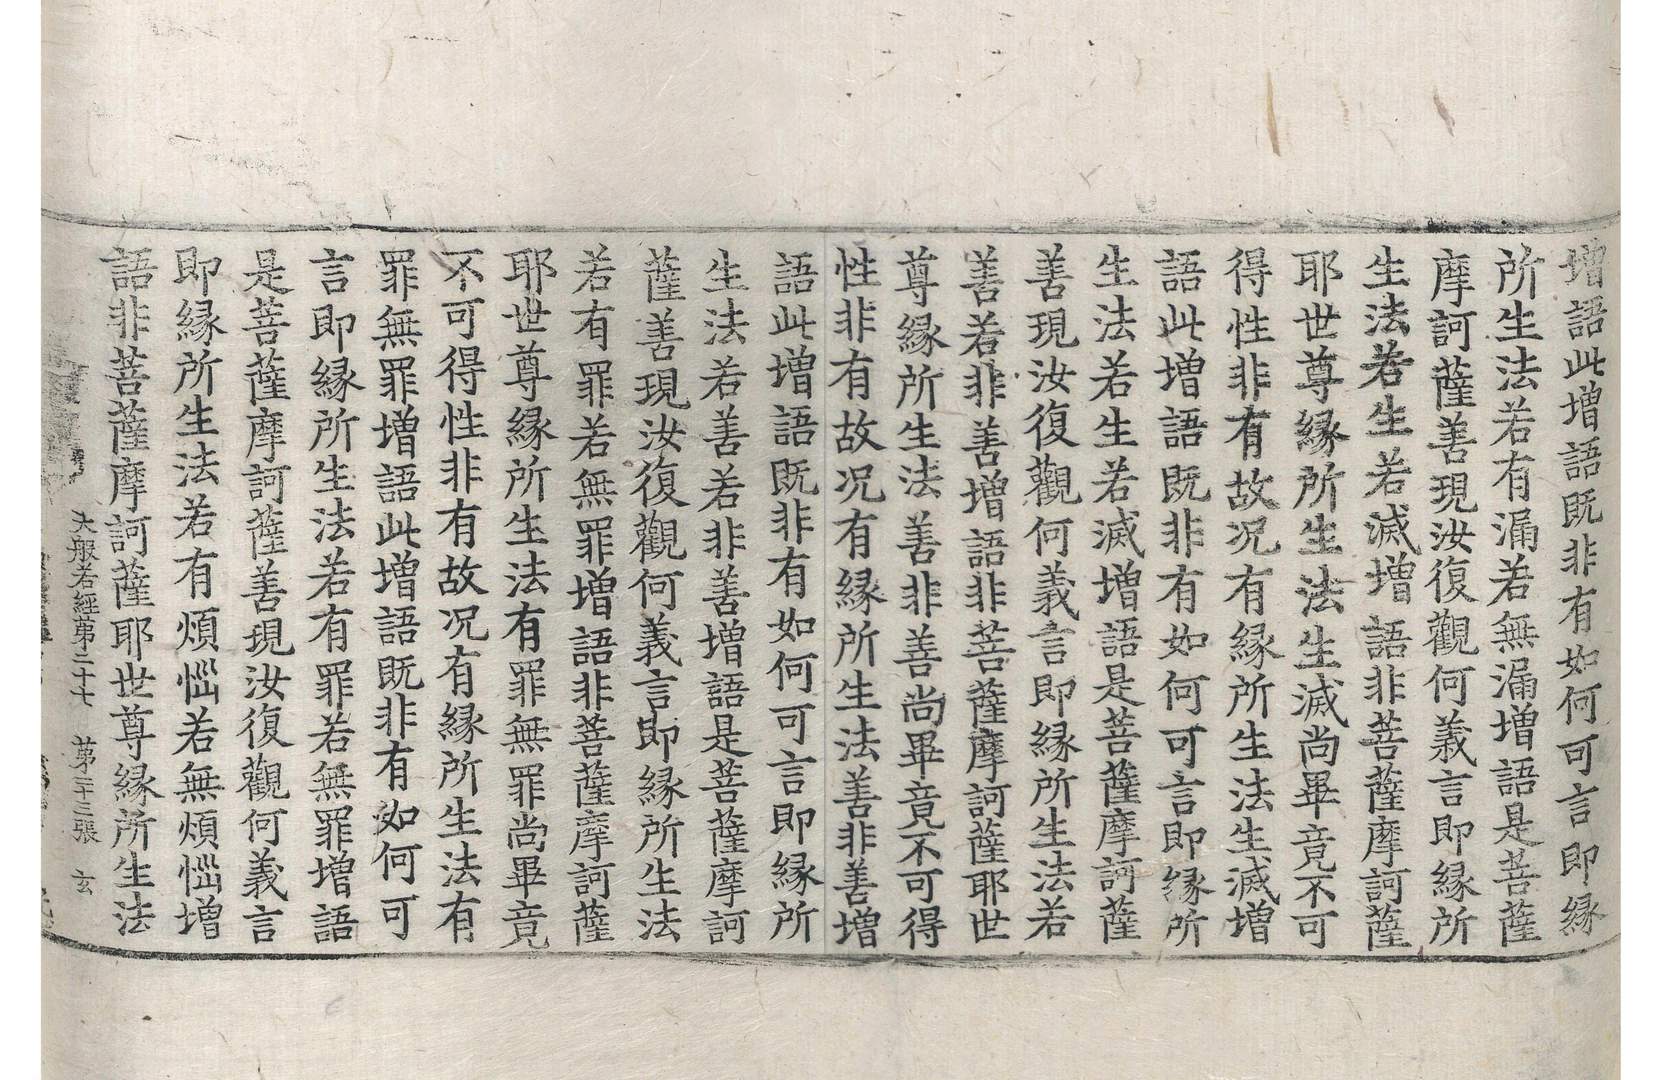 增語此增語既非有如何可言即緣
所生法若有漏若無漏增語是菩薩
摩訶薩善現汝復觀何義言即緣所
生法若生若滅增語非菩薩摩訶薩
耶世尊緣所生法生滅尚畢竟不可
得性非有故况有緣所生法生滅增
語此增語既非有如何可言即緣所
生法若生若滅增語是菩薩摩訶薩
善現汝復觀何義言即緣所生法若
善若非善增語非菩薩摩訶薩耶世
尊緣所生法善非善尚畢竟不可得
性非有故况有緣所生法善非善增
語此增語既非有如何可言即緣所
生法若善若非善增語是菩薩摩訶
薩善現汝復觀何義言即緣所生法
若有罪若無罪增語非菩薩摩訶薩
耶世尊緣所生法有罪無罪尚畢竟
不可得性非有故况有緣所生法有
罪無罪增語此增語既非有如何可
言即緣所生法若有罪若無罪增語
是菩薩摩訶薩善現汝復觀何義言
即緣所生法若有煩惱若無煩惱增
語非菩薩摩訶薩耶世尊緣所生法
大般若經第二十七 第二十三張 玄